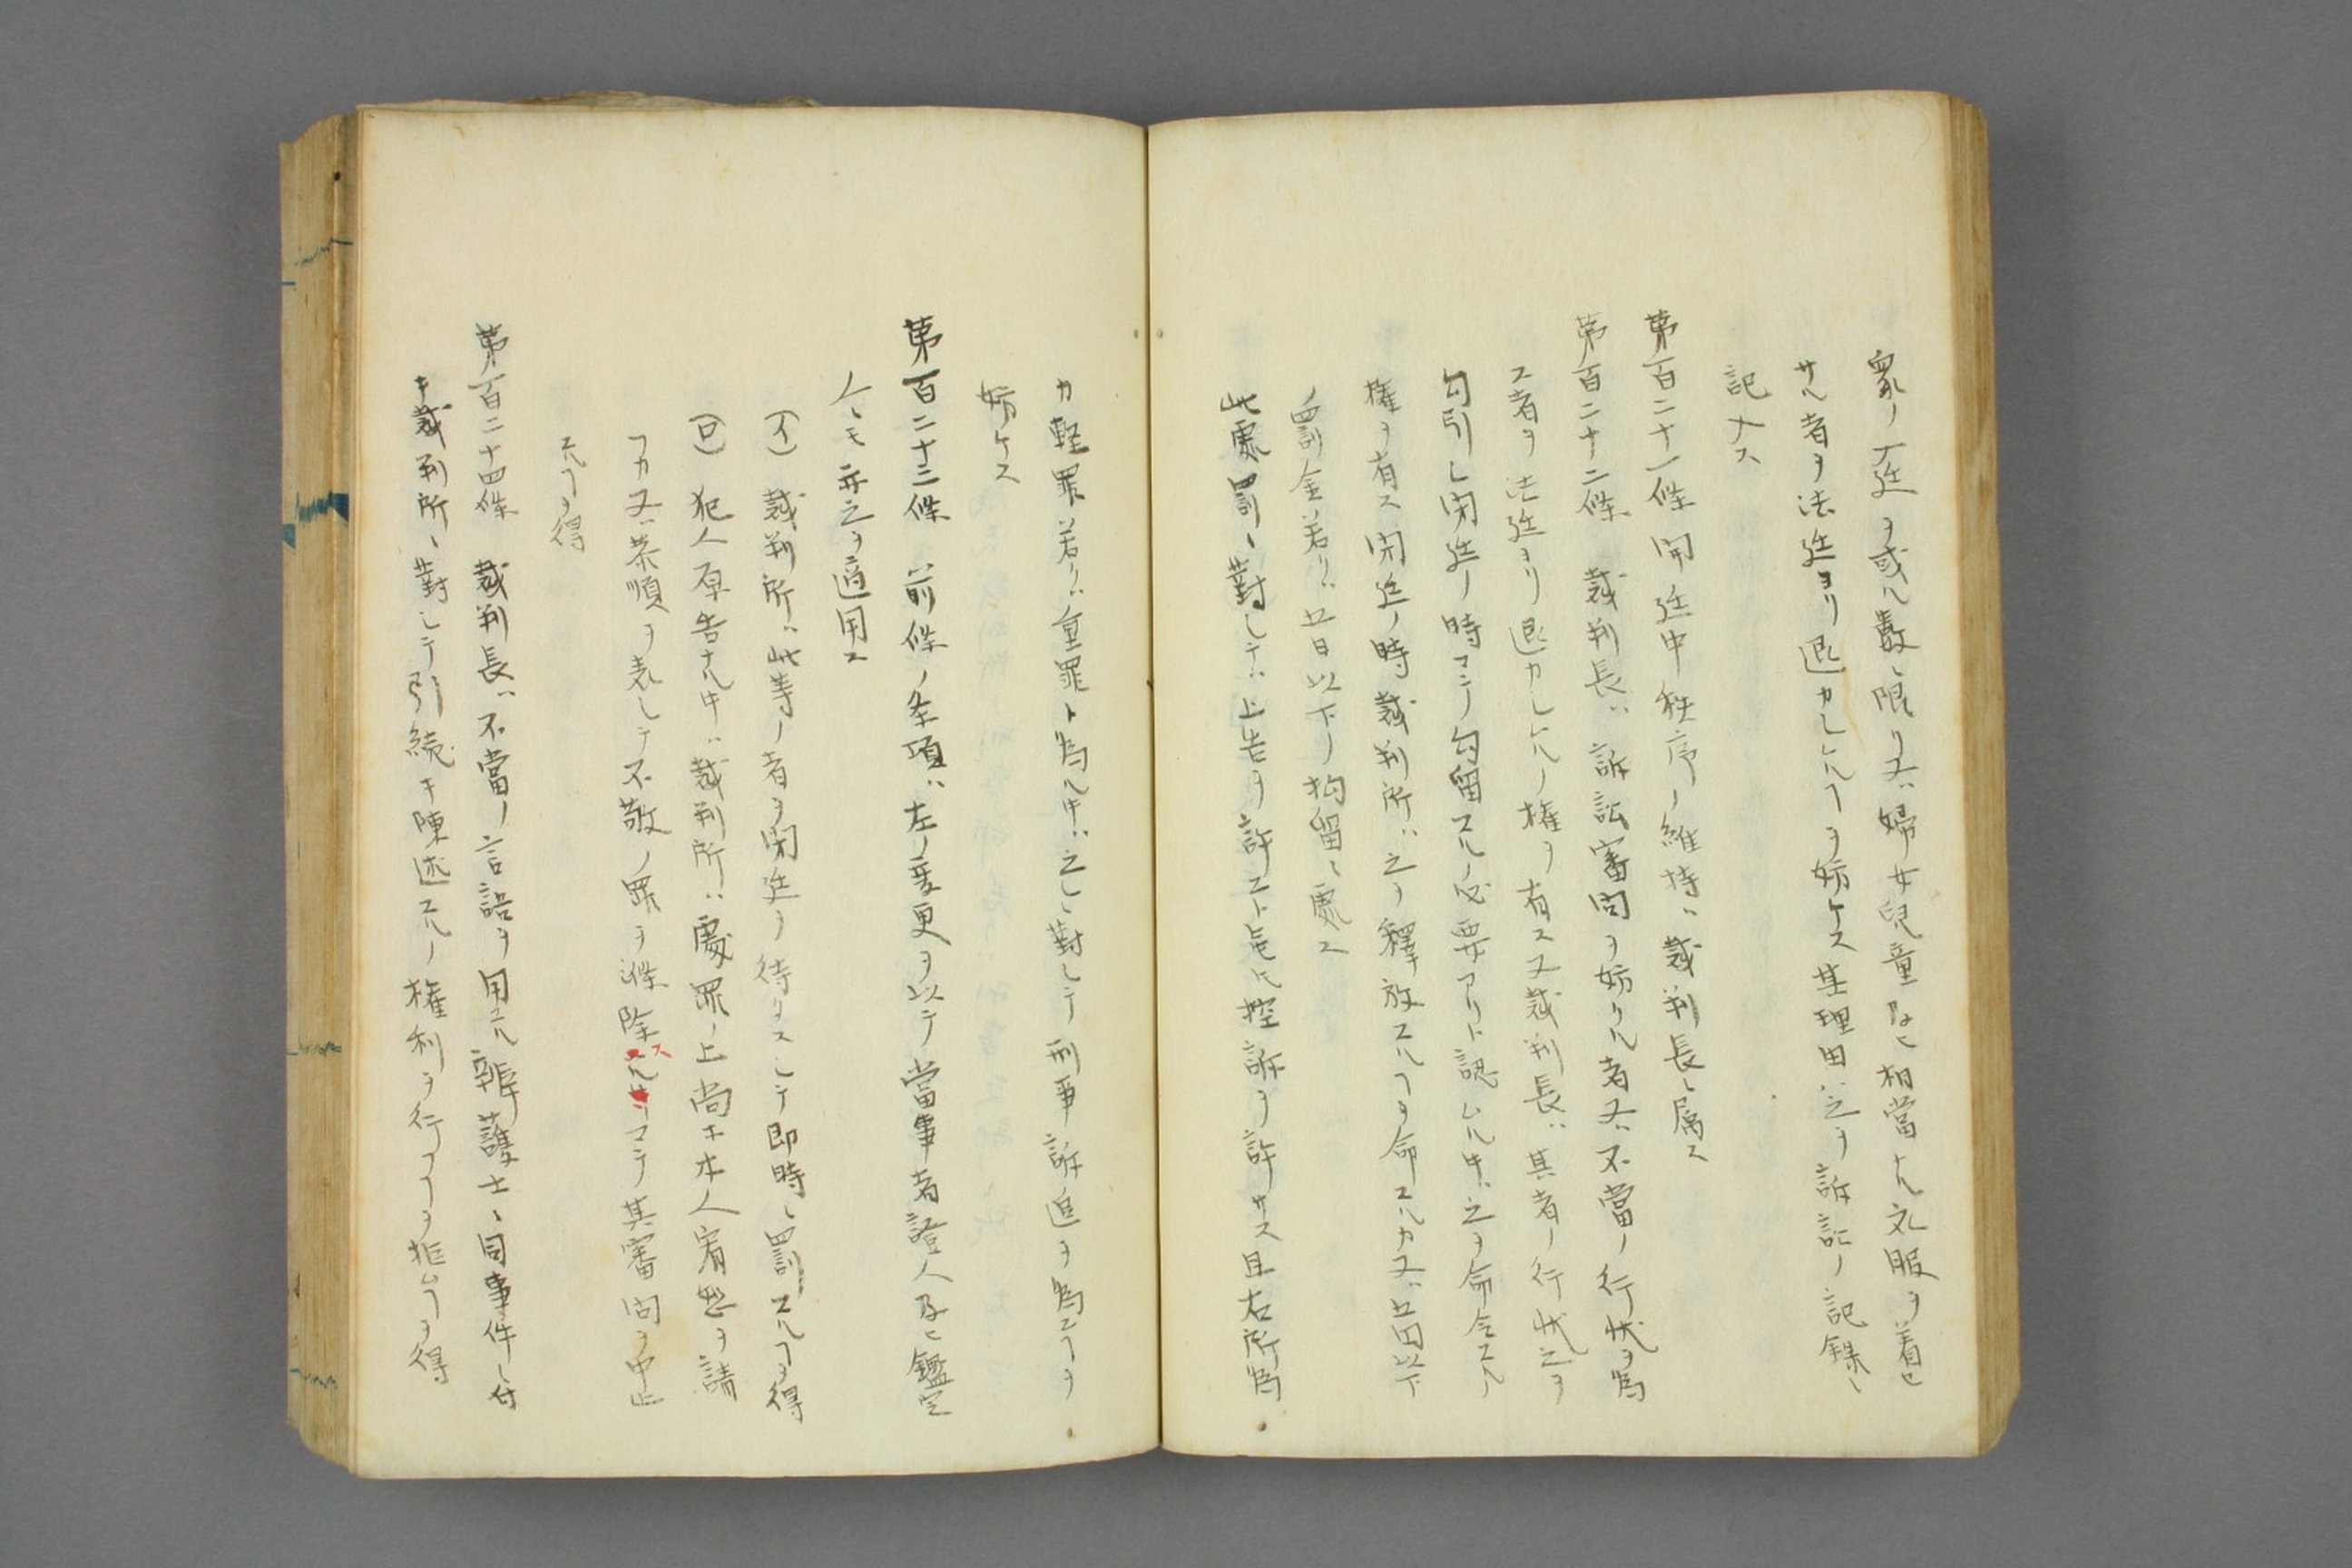 衆ノ入廷ヲ或ル數ニ限リ又ハ婦女兒童及ヒ相當ナル礼服ヲ着セ
サル者ヲ法廷ヨリ退カシムルヿヲ妨ケス其理由ハ之ヲ訴訟ノ記録ニ
記入ス
第百二十一條 開廷中秩序ノ維持ハ裁判長ニ属ス
第百二十二條 裁判長ハ訴訟審問ヲ妨クル者又ハ不當ノ行状ヲ為
ス者ヲ法廷ヨリ退カシムルノ権ヲ有ス又裁判長ハ其者ノ行状之ヲ
勾引シ閉廷ノ時マテ勾留スルノ必要アリト認ムル片ハ之ヲ命令スルノ
権ヲ有ス閉廷ノ時裁判所ハ之ヲ釋放スルヿヲ命スルカ又ハ五円以下
ノ罰金若クハ五日以下ノ拘留ニ處ス
此處罰ニ對シテハ上告ヲ許スト雖𪜈控訴ヲ許サス且右所為
カ軽罪若クハ重罪ト為ル片ハ之レニ對シテ刑事訴追ヲ為スヿヲ
妨ケス
第百二十三條 前條ノ条項ハ左ノ変更ヲ以テ當事者證人及ヒ鑑定
人ニモ亦之ヲ適用ス
(イ) 裁判所ハ此等ノ者ヲ閉廷ヲ待タスシテ即時ニ罰スルヿヲ得
(ロ) 犯人原告ナル片ハ裁判所ハ處罪ノ上尚ホ本人宥恕ヲ請
フカ又ハ恭順ヲ表シテ不敬ノ罪ヲ滌除スルマテ其審問ヲ中止
スルヿヲ得
第百二十四條 裁判長ハ不當ノ言語ヲ用ユル辯護士ニ同事件ニ付
キ裁判所ニ對シテ引続キ陳述スルノ権利ヲ行フヿヲ拒ムヿヲ得